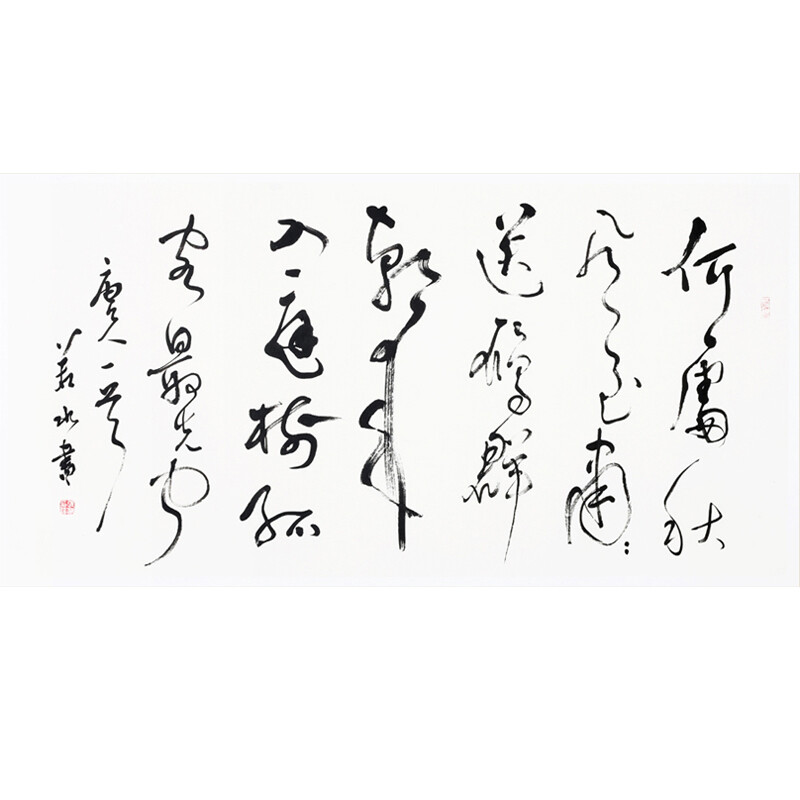 何處秋
風至蕭:
送雁群
朝来
入庭樹孤
客最先聞
唐人一首
水書